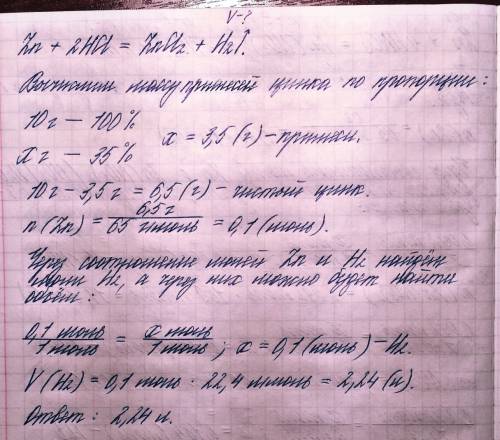 V-?
Zn + 2HCl = ZnCl₂ + H₂↑.
Вычислим массу примесей цинка по пропорции:
10 г — 100%
x г — 35%
x = 3,5 (г) - примеси.
10 г - 3,5 г = 6,5 (г) - чистый цинк.
n(Zn) = 6,5 г / 65 г/моль = 0,1 (моль).
Через соотношение молей Zn и H₂ найдём
моли H₂, а через них можно будет найти
объём:
0,1 моль / 1 моль = x моль / 1 моль ; x = 0,1 (моль) - H₂.
V(H₂) = 0,1 моль · 22,4 л/моль = 2,24 (л).
Ответ: 2,24 л.